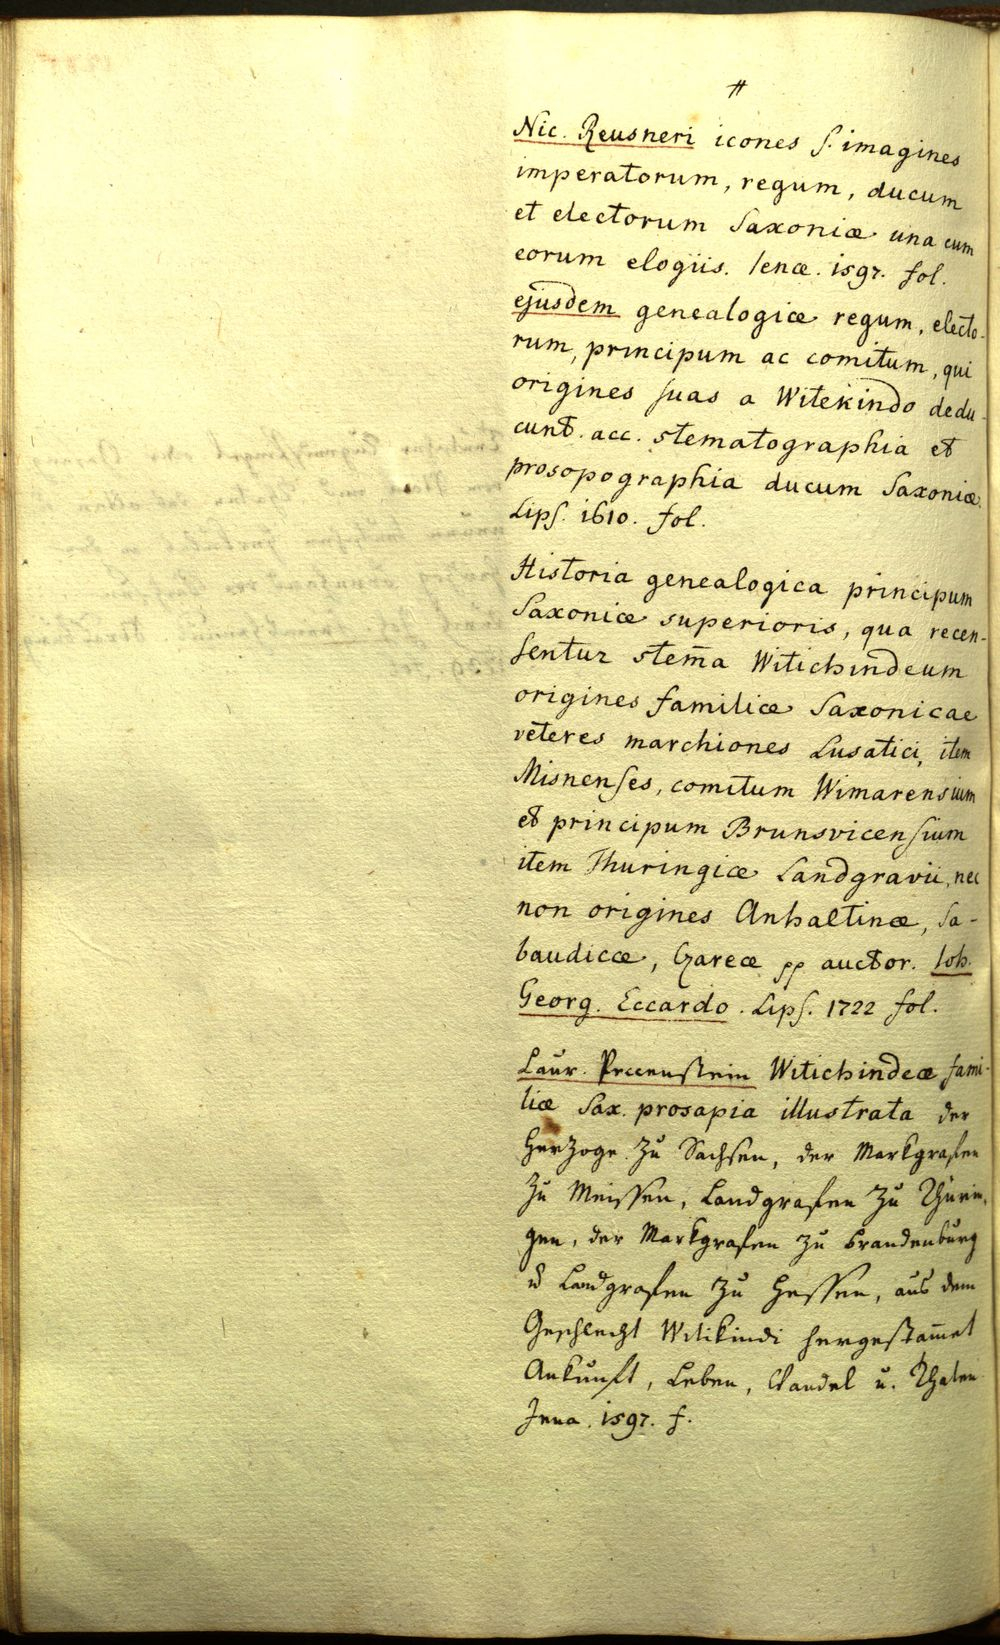 #
Nic. Reusneri icones s. imagines
imperatorum, regum, ducum
et electorum Saxoniæ una cum
eorum elogiis. Ienæ. 1597. fol.
ejusdem genealogiæ regum, electo-
rum, principum ac comitum, qui
origines suas a Witekindo dedu-
cunt. acc. stematographia et
prosopographia ducum Saxoniæ.
Lips. 1610. fol.
Historia genealogica principum
Saxoniæ superioris, qua recen-
sentur stem̄a Witichindeum
origines familiæ Saxonicae
veteres marchiones Lusatici, item
Misnenses, comitum Wimarensium
et principum Brunsvicensium
item Thuringiæ Landgravii, nec
non origines Anhaltinæ, Sa-
baudicæ, pp auctor. Ioh.
Georg. Eccardo. Lips. 1722 fol.
Laur. Peccenstein Witichindeæ fami-
liæ Sax. prosapia illustrata der
Herzoge zu Sachsen, der Markgrafen
zu Meissen, Landgrafen zu Thürin-
gen, der Markgrafen zu Brandenburg
u Landgrafen zu Hessen, aus dem
Geschlecht Witikindi hergestam̄et
Ankunft, Leben, Wandel u. Thaten
Jena. 1597. f.